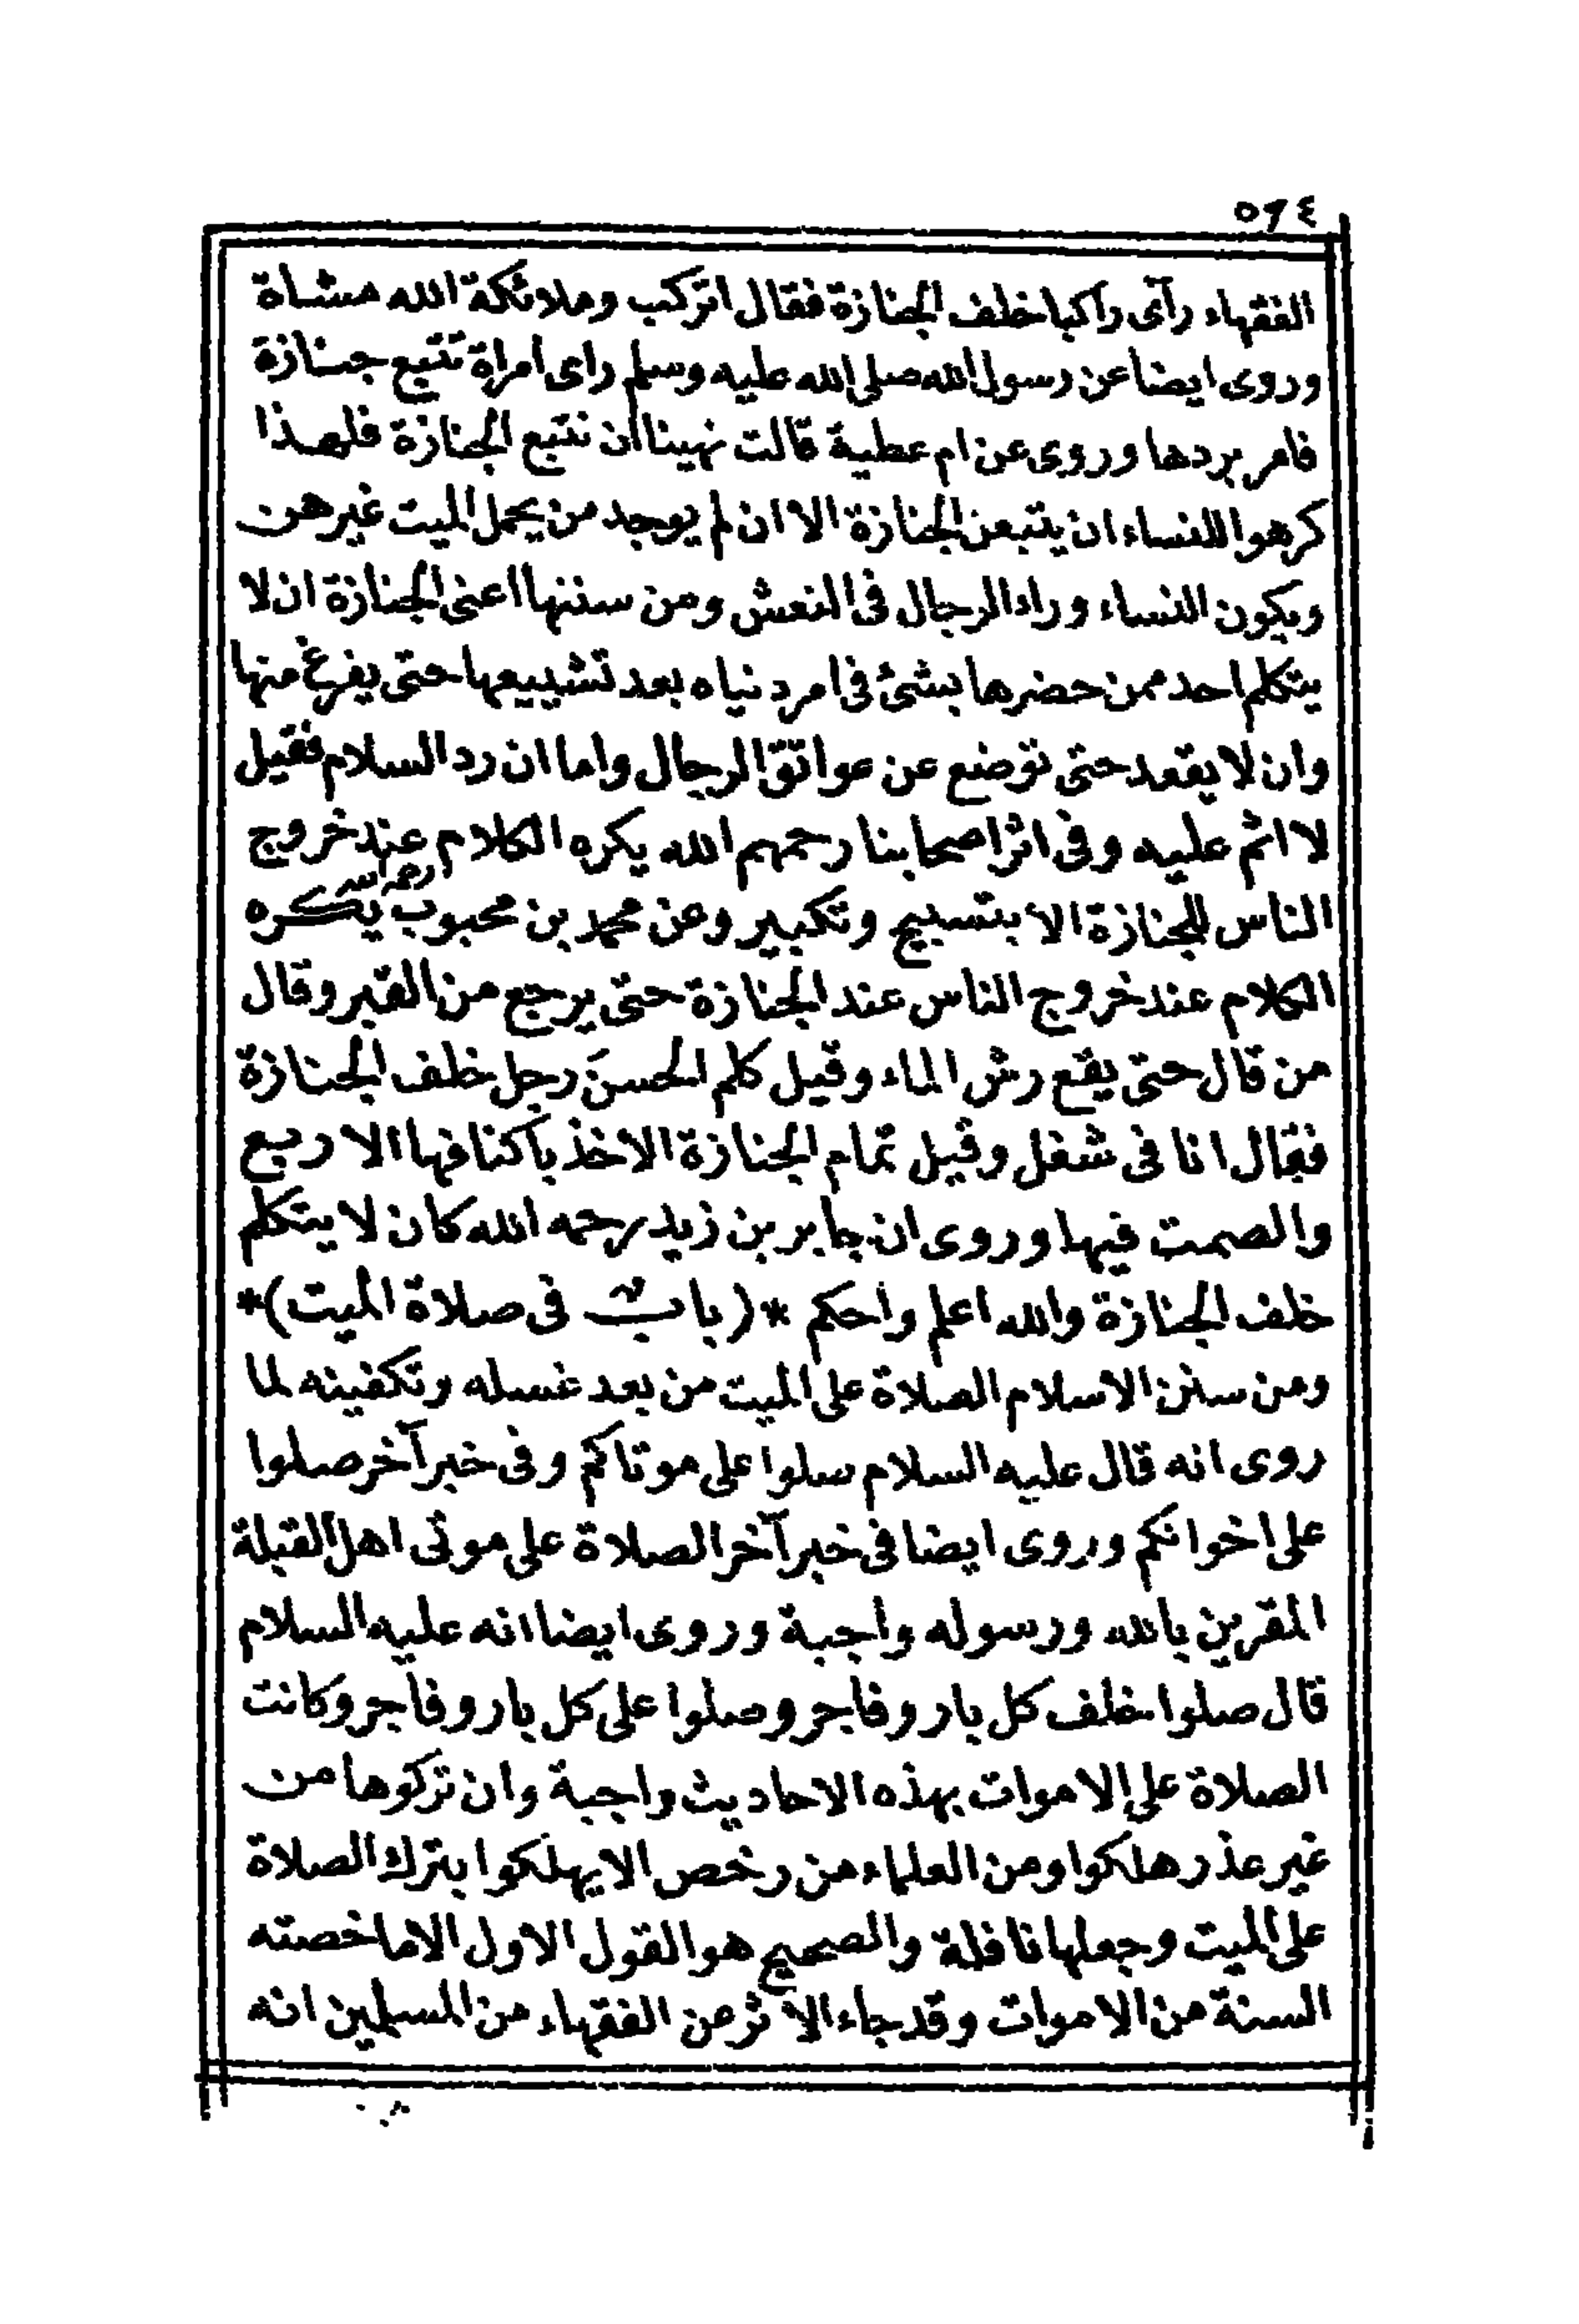 ٥٦٤
الفقهاء رآى راكبا خلف الجنازة فقال اتركب وملائكة الله مشاة
وروى ايضا عن رسول الله صلى الله عليه وسلم راى امراة تتبع جنازة
فامر بردها وروى عن ام عطية قالت نهينا أن نتبع الجنازة فلهذا
كرهوا للنساء ان يتبعن الجنازة الا ان لم يوجد من يحمل الميت غيرهن
ويكون النساء وراء الرجال فى النعش ومن سننها اعنى الجنازة ان لا
يتكلم احد ممن حضرها بشئ فى امر دنياه بعد تشييعها حتى يفرغ منها
وان لا يقعد حتى توضع عن عواتق الرجال واما ان رد السلام فقيل
لا اثم عليه وفى اثر اصحابنا رحمهم الله يكره الكلام عند خروج
الناس للجنازة الا بتسبيح وتكبير وعن محمد بن محبوب رحمه الله يكره
الكلام عند خروج الناس عند الجنازة حتى يرجع من القبر وقال
من قال حتى يقع رش الماء وقيل كلم الحسنَ رجل خلف الجنازة
فقال انا فى شغل وقيل تمام الجنازة الاخذ باكنافها الاربع
والصمت فيها وروى ان جابر بن زيد رحمه الله كان لا يتكلم
خلف الجنازة والله اعلم واحكم *(باب فى صلاة الميت)*
ومن سنن الاسلام الصلاة على الميت من بعد غسله وتكفينه لما
روى انه قال عليه السلام سلوا على موتاكم وفى خبر آخر صلوا
على اخوانكم وروى ايضا فى خبر آخر الصلاة على موتى اهل القبلة
المقرين بالله ورسوله واجبة وروى ايضا انه عليه السلام
قال صلوا خلف كل بار وفاجر وصلوا على كل بار وفاجر وكانت
الصلاة على الاموات بهذه الاحاديث واجبة وان تركوها من
غير عذر هلكوا ومن العلماء من رخص الا يهلكوا بترك الصلاة
على الميت وجعلها نافلة والصحيح هو القول الاول الا ما خصته
السنة من الاموات وقد جاء الاثر عن الفقهاء من المسلمين انه